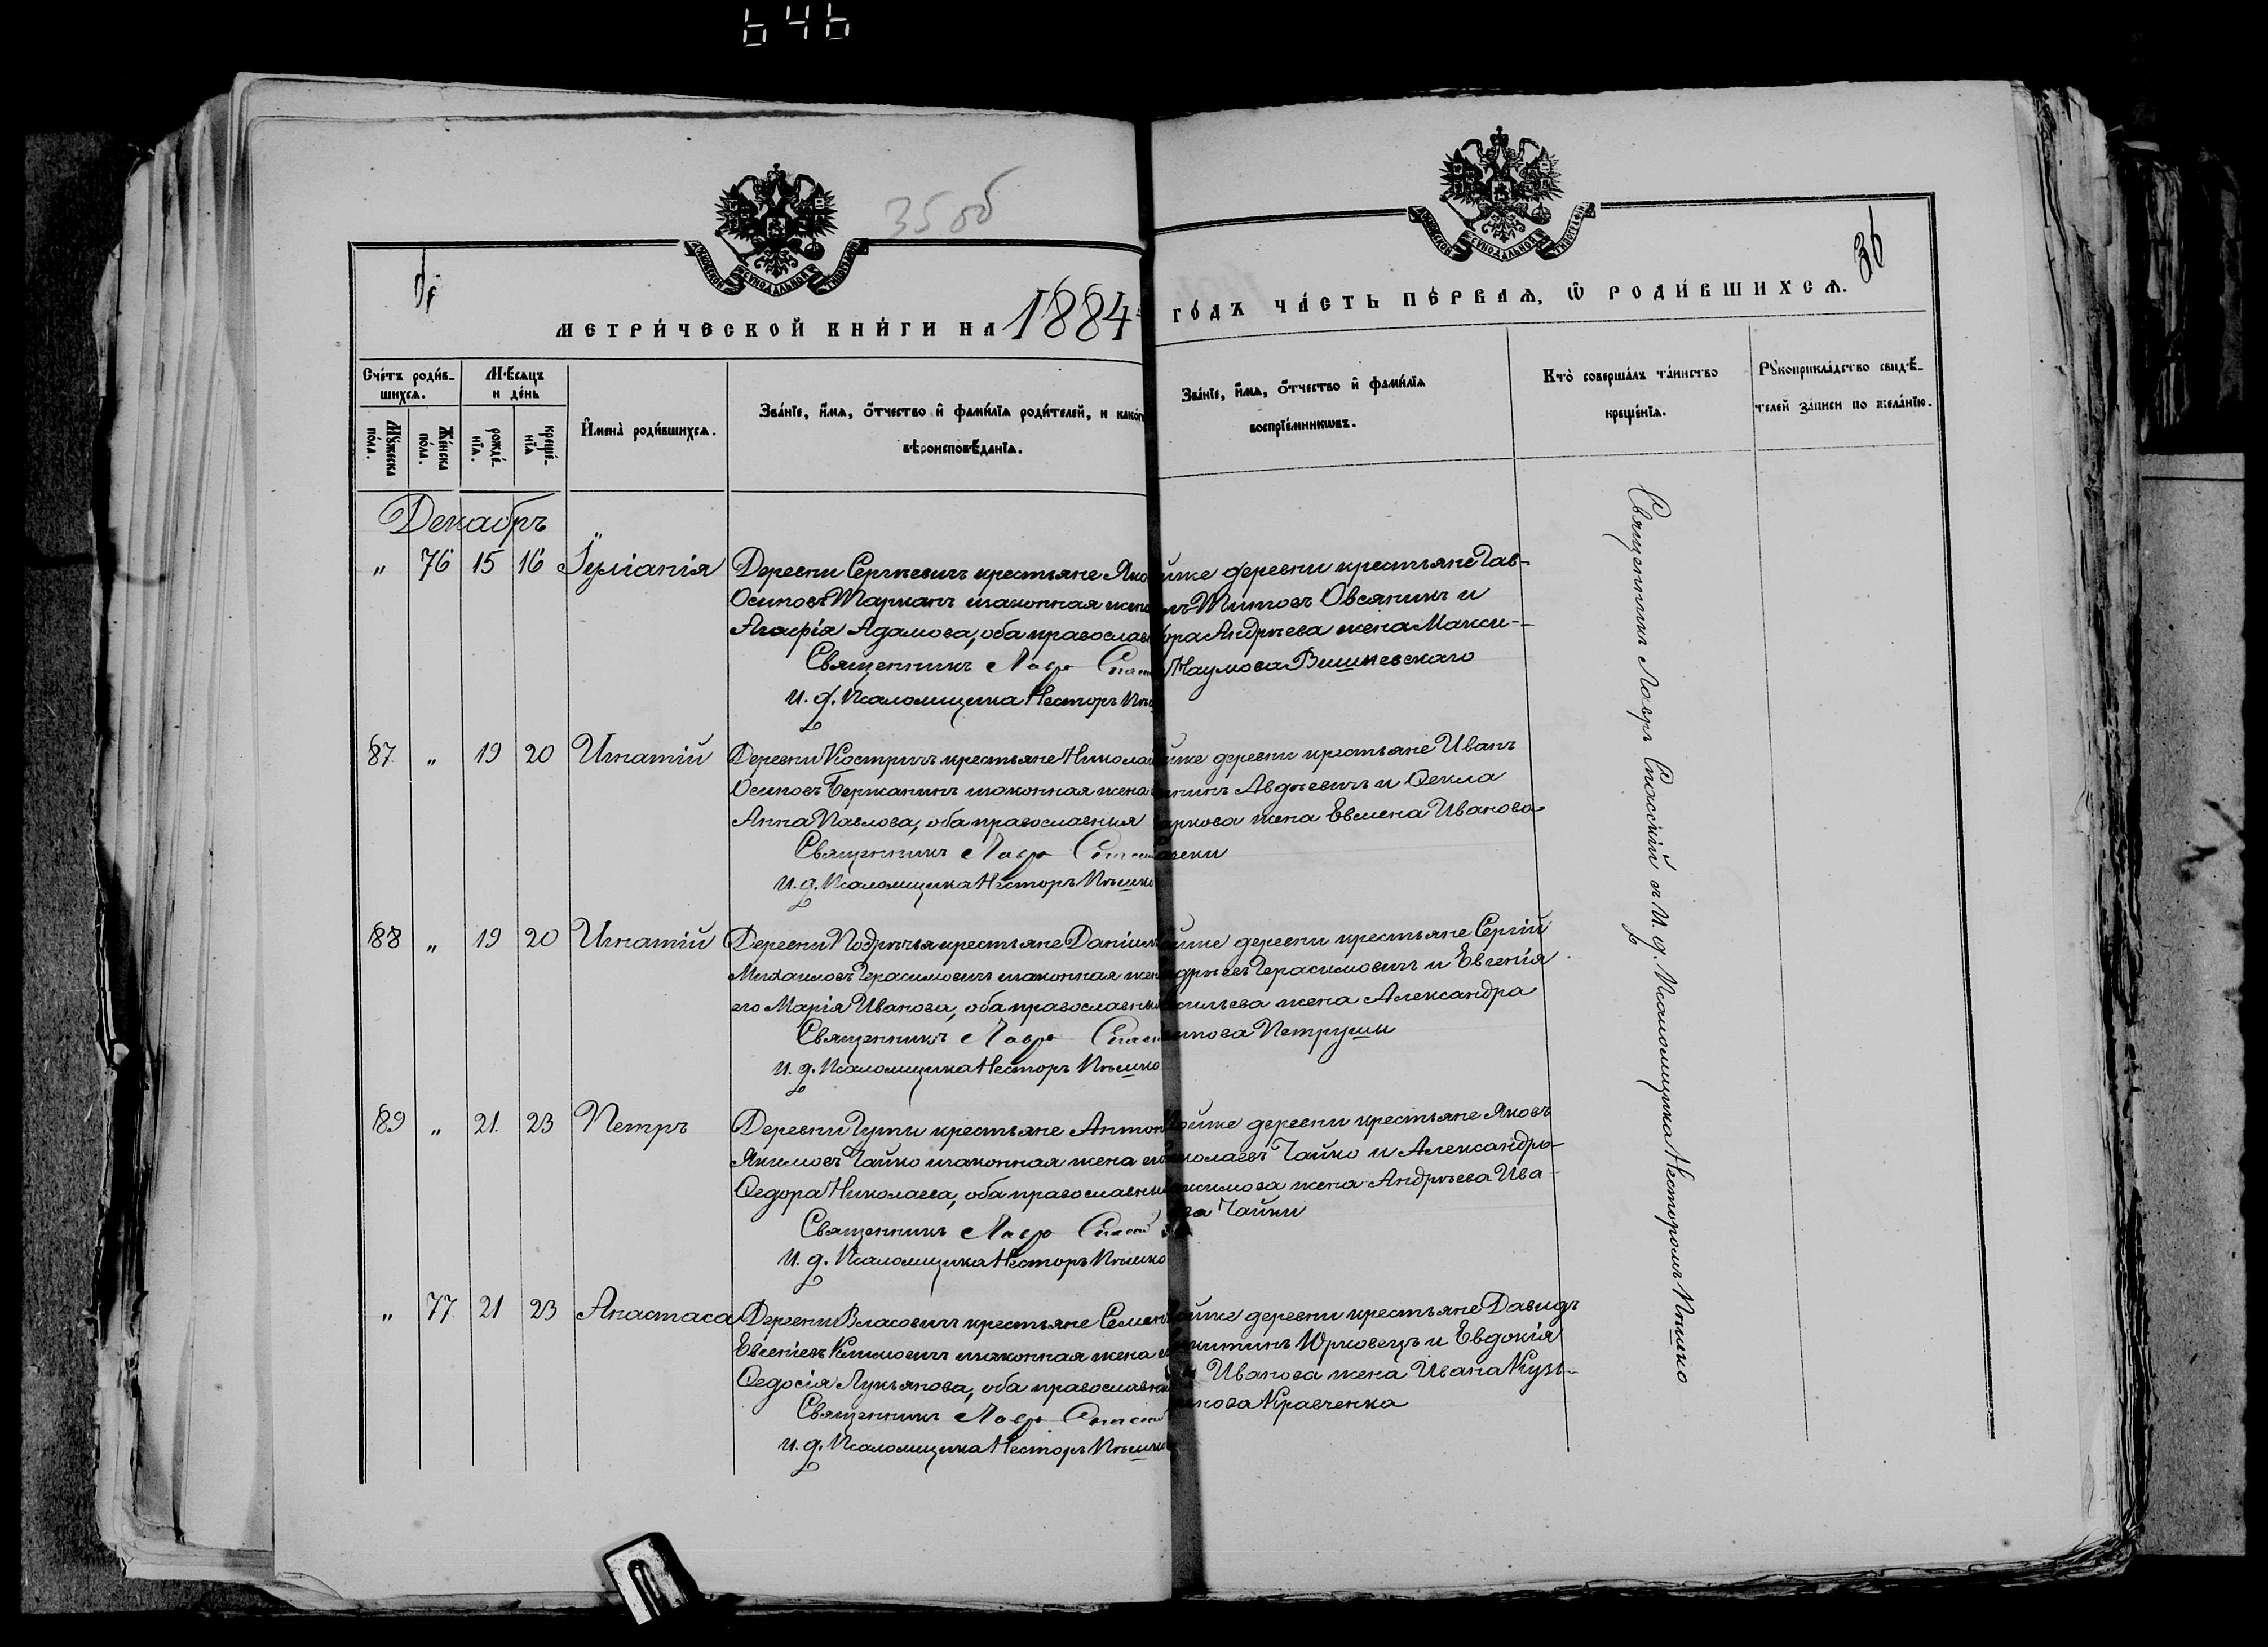 646
35 об
36
МЕТРИ́ЧЕСКОЙ КНИ́ГИ НА 1884 ГО́ДЪ ЧА́СТЬ ПЕ́РВАѦ, Ѡ РОДИ́ВШИХСѦ.
Сче́тъ роди́в-
шихсѧ.
Мꙋ́жеска по́ла.
Же́нска по́ла.
Мѣ́сяцъ
и де́нь
рожде́-
нїѧ.
креще́-
нїѧ
И҆мена̀ роди́вшихсѧ.
Зва́нїе, и҆́мѧ, ѻ҆́тчество и҆ фами́лїѧ роди́телей, и како́г
вѣроисповѣ́данїѧ.
Зва́нїе, и҆́мѧ, ѻ҆́тчество и҆ фами́лїѧ
воспрїе́мникѡвъ.
Кто̀ соверша́лъ та́инство
креще́нїѧ.
Рꙋкоприкла́дство свидѣ́-
телей за́писи по жела́нїю.
Декабрь
" 76 15 16 Іуліанія
Деревни Сергѣевичъ крестьяне Яко
Осиповъ Тарканъ изаконная жена
Агафія Адамова, оба православн
Священникъ Лавръ Спасск
И. д. Псаломщика Несторъ Пѣш
йже деревни крестьяне Гав-
лъ Титовъ Овсяникъ и
ора Андрѣева жена Макси-
Наумова Вишневскаго
87 " 19 20 Игнатій
Деревни Костричъ крестьяне Николай
Осиповъ Бержанинъ изаконная жена
Анна Павлова, оба православныя
Священникъ Лавръ Спасск
И. д. Псаломщика Несторъ Пѣшко
йже деревни крестьяне Иванъ
Авдѣевичъ и Ѳекла
аркова жена Евмена Иванова
88 " 19 20 Игнатій
Деревни Подрѣчья крестьяне Даніилъ
Михаиловъ Герасимовичъ изаконная жена
его Марія Иванова, оба православныя
Священникъ Лавръ Спасск
И. д. Псаломщика Несторъ Пѣшко
ойже деревни крестьяне Сергій
дрѣевъ Герасимовичъ и Евгенія
сильева жена Александра
ипова Петруши
89 " 21 23 Петръ
Деревни Гуты крестьяне Антон
Якимовъ Чайко изаконная жена его
Ѳедора Николаева, оба православны
Священникъ Лавръ Спасск
И. д. Псаломщика Несторъ Пѣшко
ойже деревни крестьяне Яковъ
иколаевъ Чайко и Александра
ксимова жена Андрѣева Ива
на Чайки
" 77 21 23 Анастаса
Деревни Власовичъ крестьяне Семен
Евгеніевъ Климовичъ изаконная жена
Ѳедосія Лукьянова, оба православн
Священникъ Лавръ Спасск
И. д. Псаломщика Несторъ Пѣшко
ойже деревни крестьяне Давидъ
икитинъ Юрковецъ и Евдокія
Иванова жена Ивана Кузь-
Кравченка
Священникъ Лавръ Спасскій съ И. д. Псаломщика Несторомъ Пѣшко